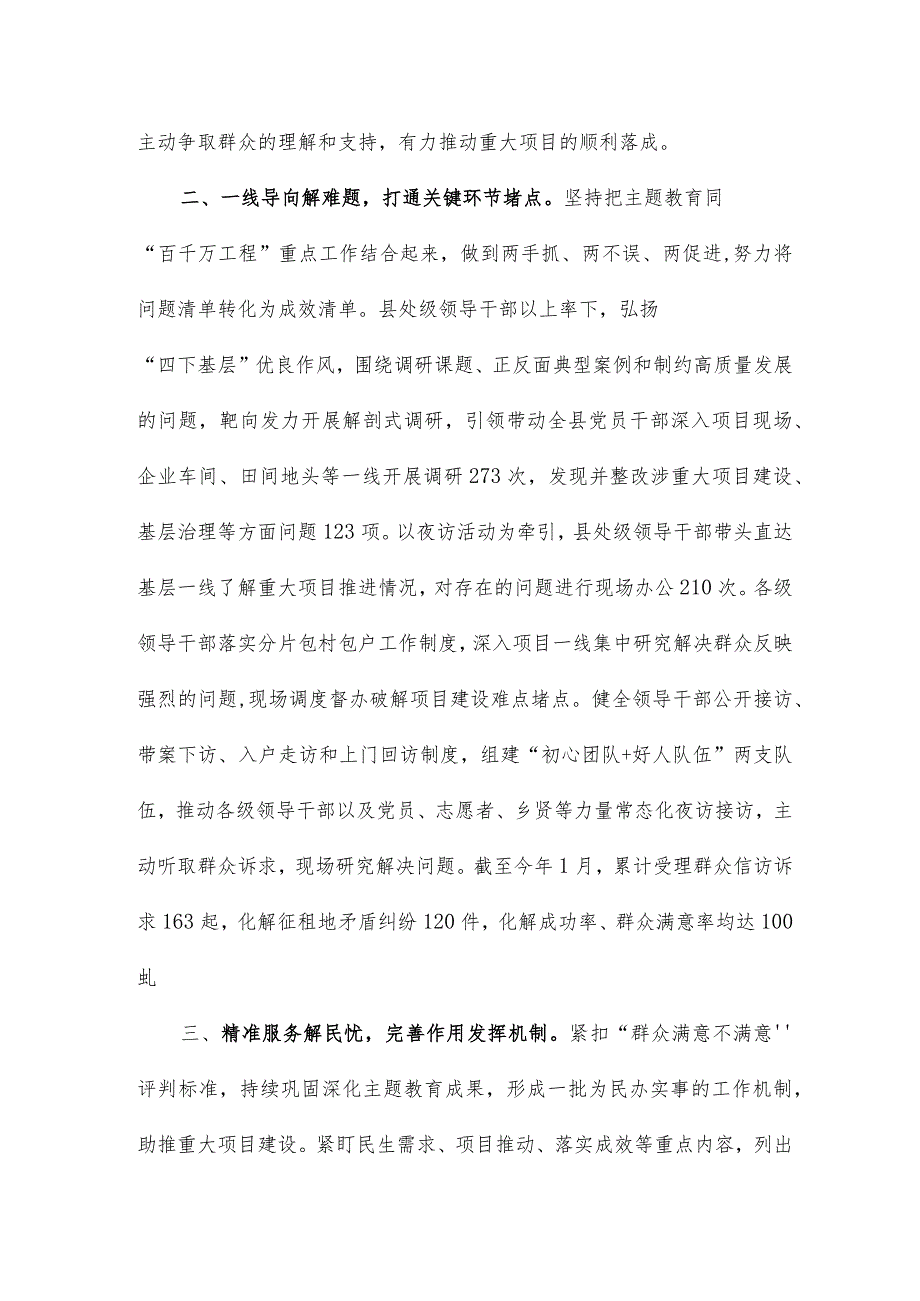 主动争取群众的理解和支持，有力推动重大项目的顺利落成。
二、一线导向解难题，打通关键环节堵点。坚持把主题教育同
“百千万工程”重点工作结合起来，做到两手抓、两不误、两促进,努力将
问题清单转化为成效清单。县处级领导干部以上率下，弘扬
“四下基层”优良作风，围绕调研课题、正反面典型案例和制约高质量发展
的问题，靶向发力开展解剖式调研，引领带动全县党员干部深入项目现场、
企业车间、田间地头等一线开展调研273次，发现并整改涉重大项目建设、
基层治理等方面问题123项。以夜访活动为牵引，县处级领导干部带头直达
基层一线了解重大项目推进情况，对存在的问题进行现场办公210次。各级
领导干部落实分片包村包户工作制度，深入项目一线集中研究解决群众反映
强烈的问题,现场调度督办破解项目建设难点堵点。健全领导干部公开接访、
带案下访、入户走访和上门回访制度，组建“初心团队+好人队伍”两支队
伍，推动各级领导干部以及党员、志愿者、乡贤等力量常态化夜访接访，主
动听取群众诉求，现场研究解决问题。截至今年1月，累计受理群众信访诉
求163起，化解征租地矛盾纠纷120件，化解成功率、群众满意率均达100
虬
三、精准服务解民忧，完善作用发挥机制。紧扣“群众满意不满意''
评判标准，持续巩固深化主题教育成果，形成一批为民办实事的工作机制，
助推重大项目建设。紧盯民生需求、项目推动、落实成效等重点内容，列出